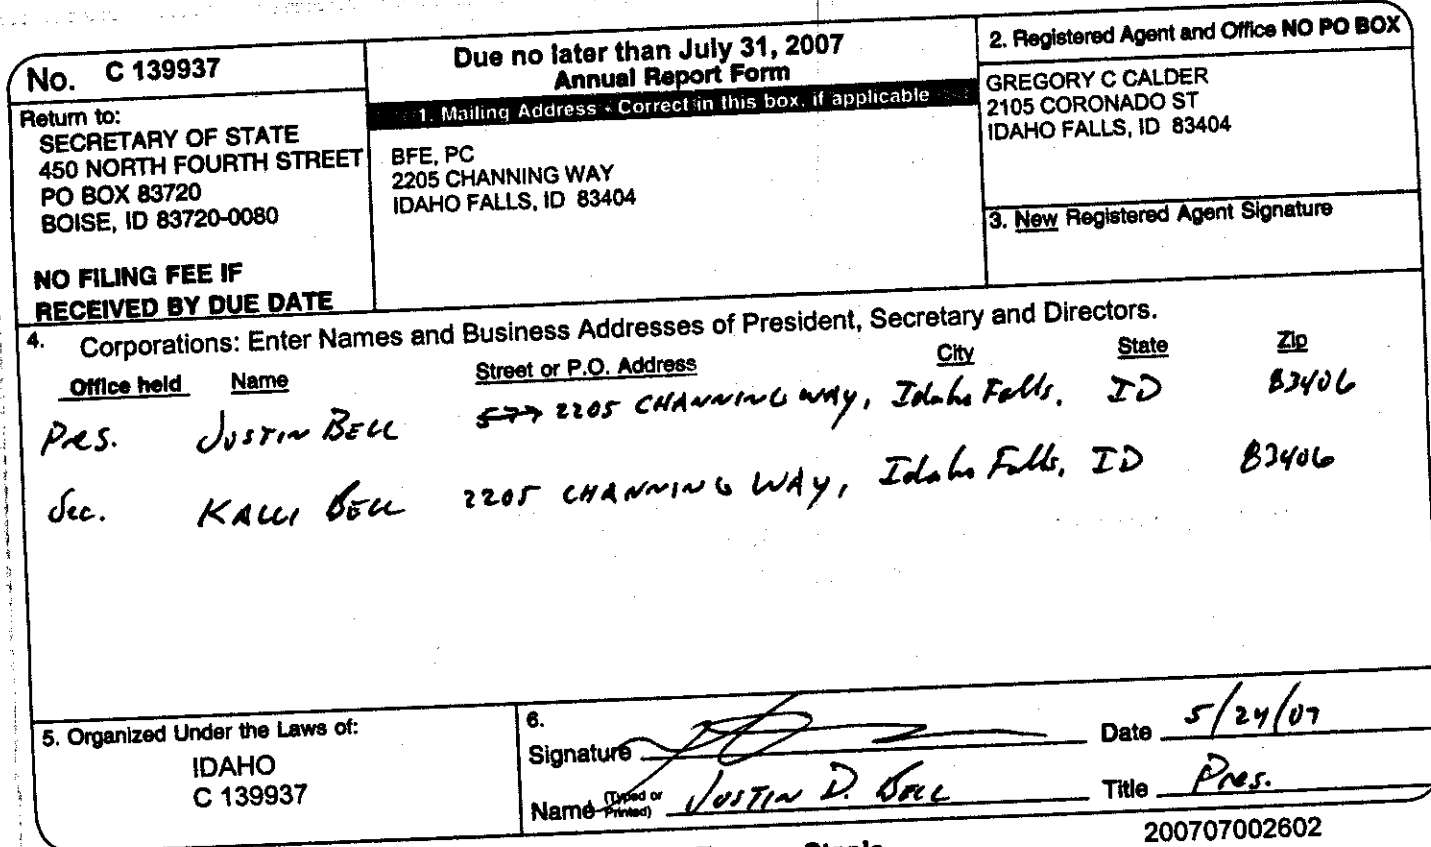 No. C 139937
Return to:
SECRETARY OF STATE
450 NORTH FOURTH STREET
PO BOX 83720
BOISE, ID 83720-0080
NO FILING FEE IF
RECEIVED BY DUE DATE
Due no later than July 31, 2007
Annual Report Form
1. Mailing Address - Correct in this box, if applicable
BFE, PC
2205 CHANNING WAY
IDAHO FALLS, ID 83404
2. Registered Agent and Office NO PO BOX
GREGORY C CALDER
2105 CORONADO ST
IDAHO FALLS, ID 83404
3. New Registered Agent Signature
4. Corporations: Enter Names and Business Addresses of President, Secretary and Directors.
Office held Name Street or P.O. Address City State Zip
Pres. JUSTIN BELL 2205 CHANNING WAY, Idaho Falls, ID 83406
Sec. KALLI BELL 2205 CHANNING WAY, Idaho Falls, ID 83406
5. Organized Under the Laws of:
IDAHO
C 139937
6.
Signature Date 5/24/07
Name (Typed or Printed) JUSTIN D. BELL Title Pres.
200707002602